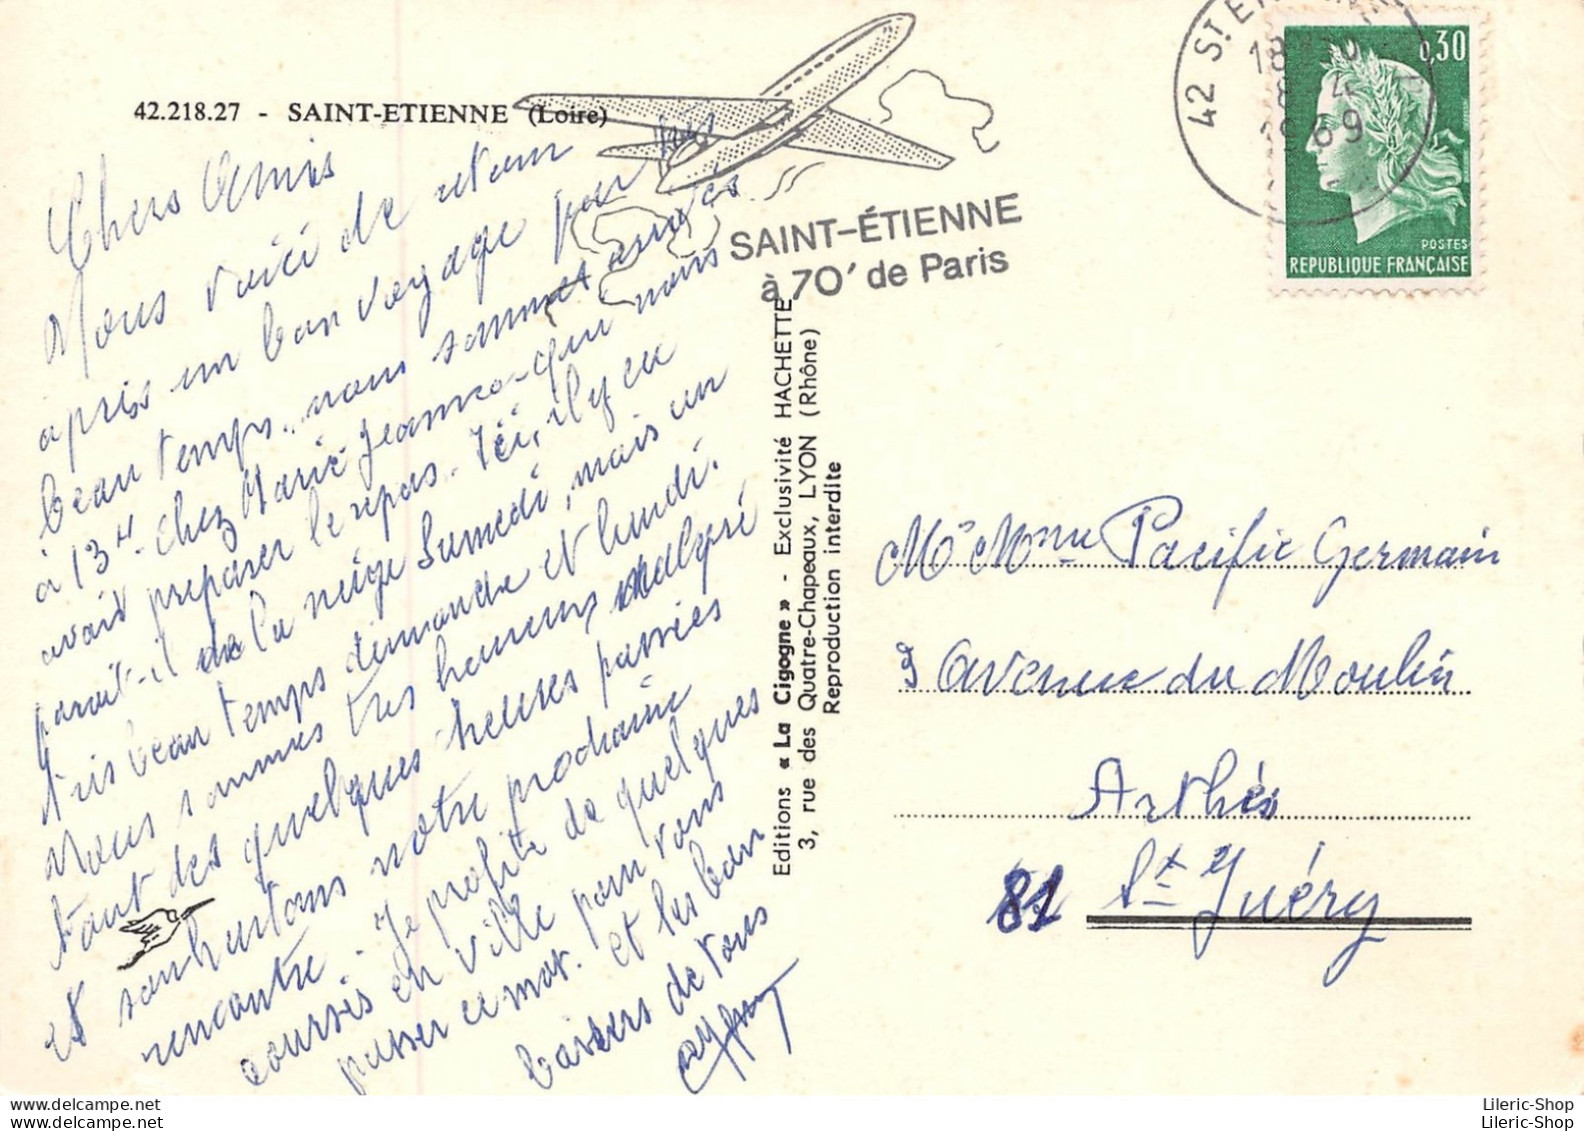 42.218.27 - SAINT-ETIENNE (Loire)
Chers Amis
Nous voici de retour
après un bon voyage par
beau temps. nous sommes arrivés
à 13H. chez Marie Jeanne - qui nous
avait préparer le repas. Ici, il y eu
parait-il de la neige Samedi, mais un
très beau temps dimanche et lundi.
Nous sommes très heureux malgré
tout des quelques heures passées
et souhaitons notre prochaine
rencontre. Je profite de quelques
courses en ville pour vous
passer ce mot. et les bon
baisers de tous
SAINT-ÉTIENNE
à 70' de Paris
Editions « La Cigogne » - Exclusivité HACHETTE
3, rue des Quatre-Chapeaux, LYON (Rhône)
Reproduction interdite
42 ST ETIENNE
18
8 4
1969
0,30
POSTES
REPUBLIQUE FRANÇAISE
Mr Mme Pacific Germain
9 Avenue du Moulin
Arthés
81 St Juéry
Lileric-Shop
Lileric-Shop